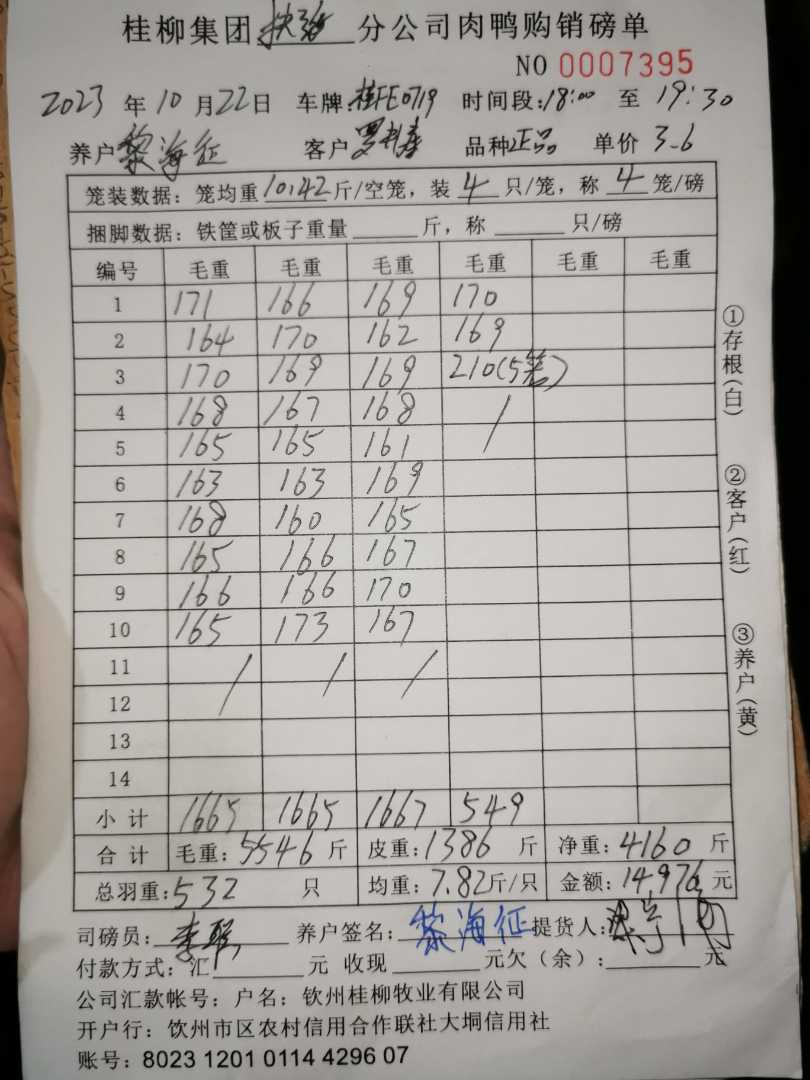 桂柳集团 分公司肉鸭购销磅单
NO 0007395
2023 年 10 月 22 日 车牌:桂FE0719 时间段:18:00 至 19:30
养户 黎海征 客户 品种 正品 单价 3.6
笼装数据: 笼均重 10.42 斤/空笼, 装 4 只/笼, 称 4 笼/磅
捆脚数据: 铁筐或板子重量 斤, 称 只/磅
编号 毛重 毛重 毛重 毛重 毛重 毛重
1 171 166 169 170
2 164 170 162 169
3 170 169 169 210(5笼)
4 168 167 168 /
5 165 165 161
6 163 163 169
7 168 160 165
8 165 166 167
9 166 166 170
10 165 173 167
11 / / /
12
13
14
小计 1665 1665 1667 549
合计 毛重: 5546 斤 皮重: 1386 斤 净重: 4160 斤
总羽重: 532 只 均重: 7.82 斤/只 金额: 14976 元
司磅员: 养户签名: 黎海征 提货人:
付款方式: 汇 元 收现 元欠(余): 元
公司汇款帐号: 户名: 钦州桂柳牧业有限公司
开户行: 钦州市区农村信用合作联社大垌信用社
账号: 8023 1201 0114 4296 07
①存根(白)
②客户(红)
③养户(黄)